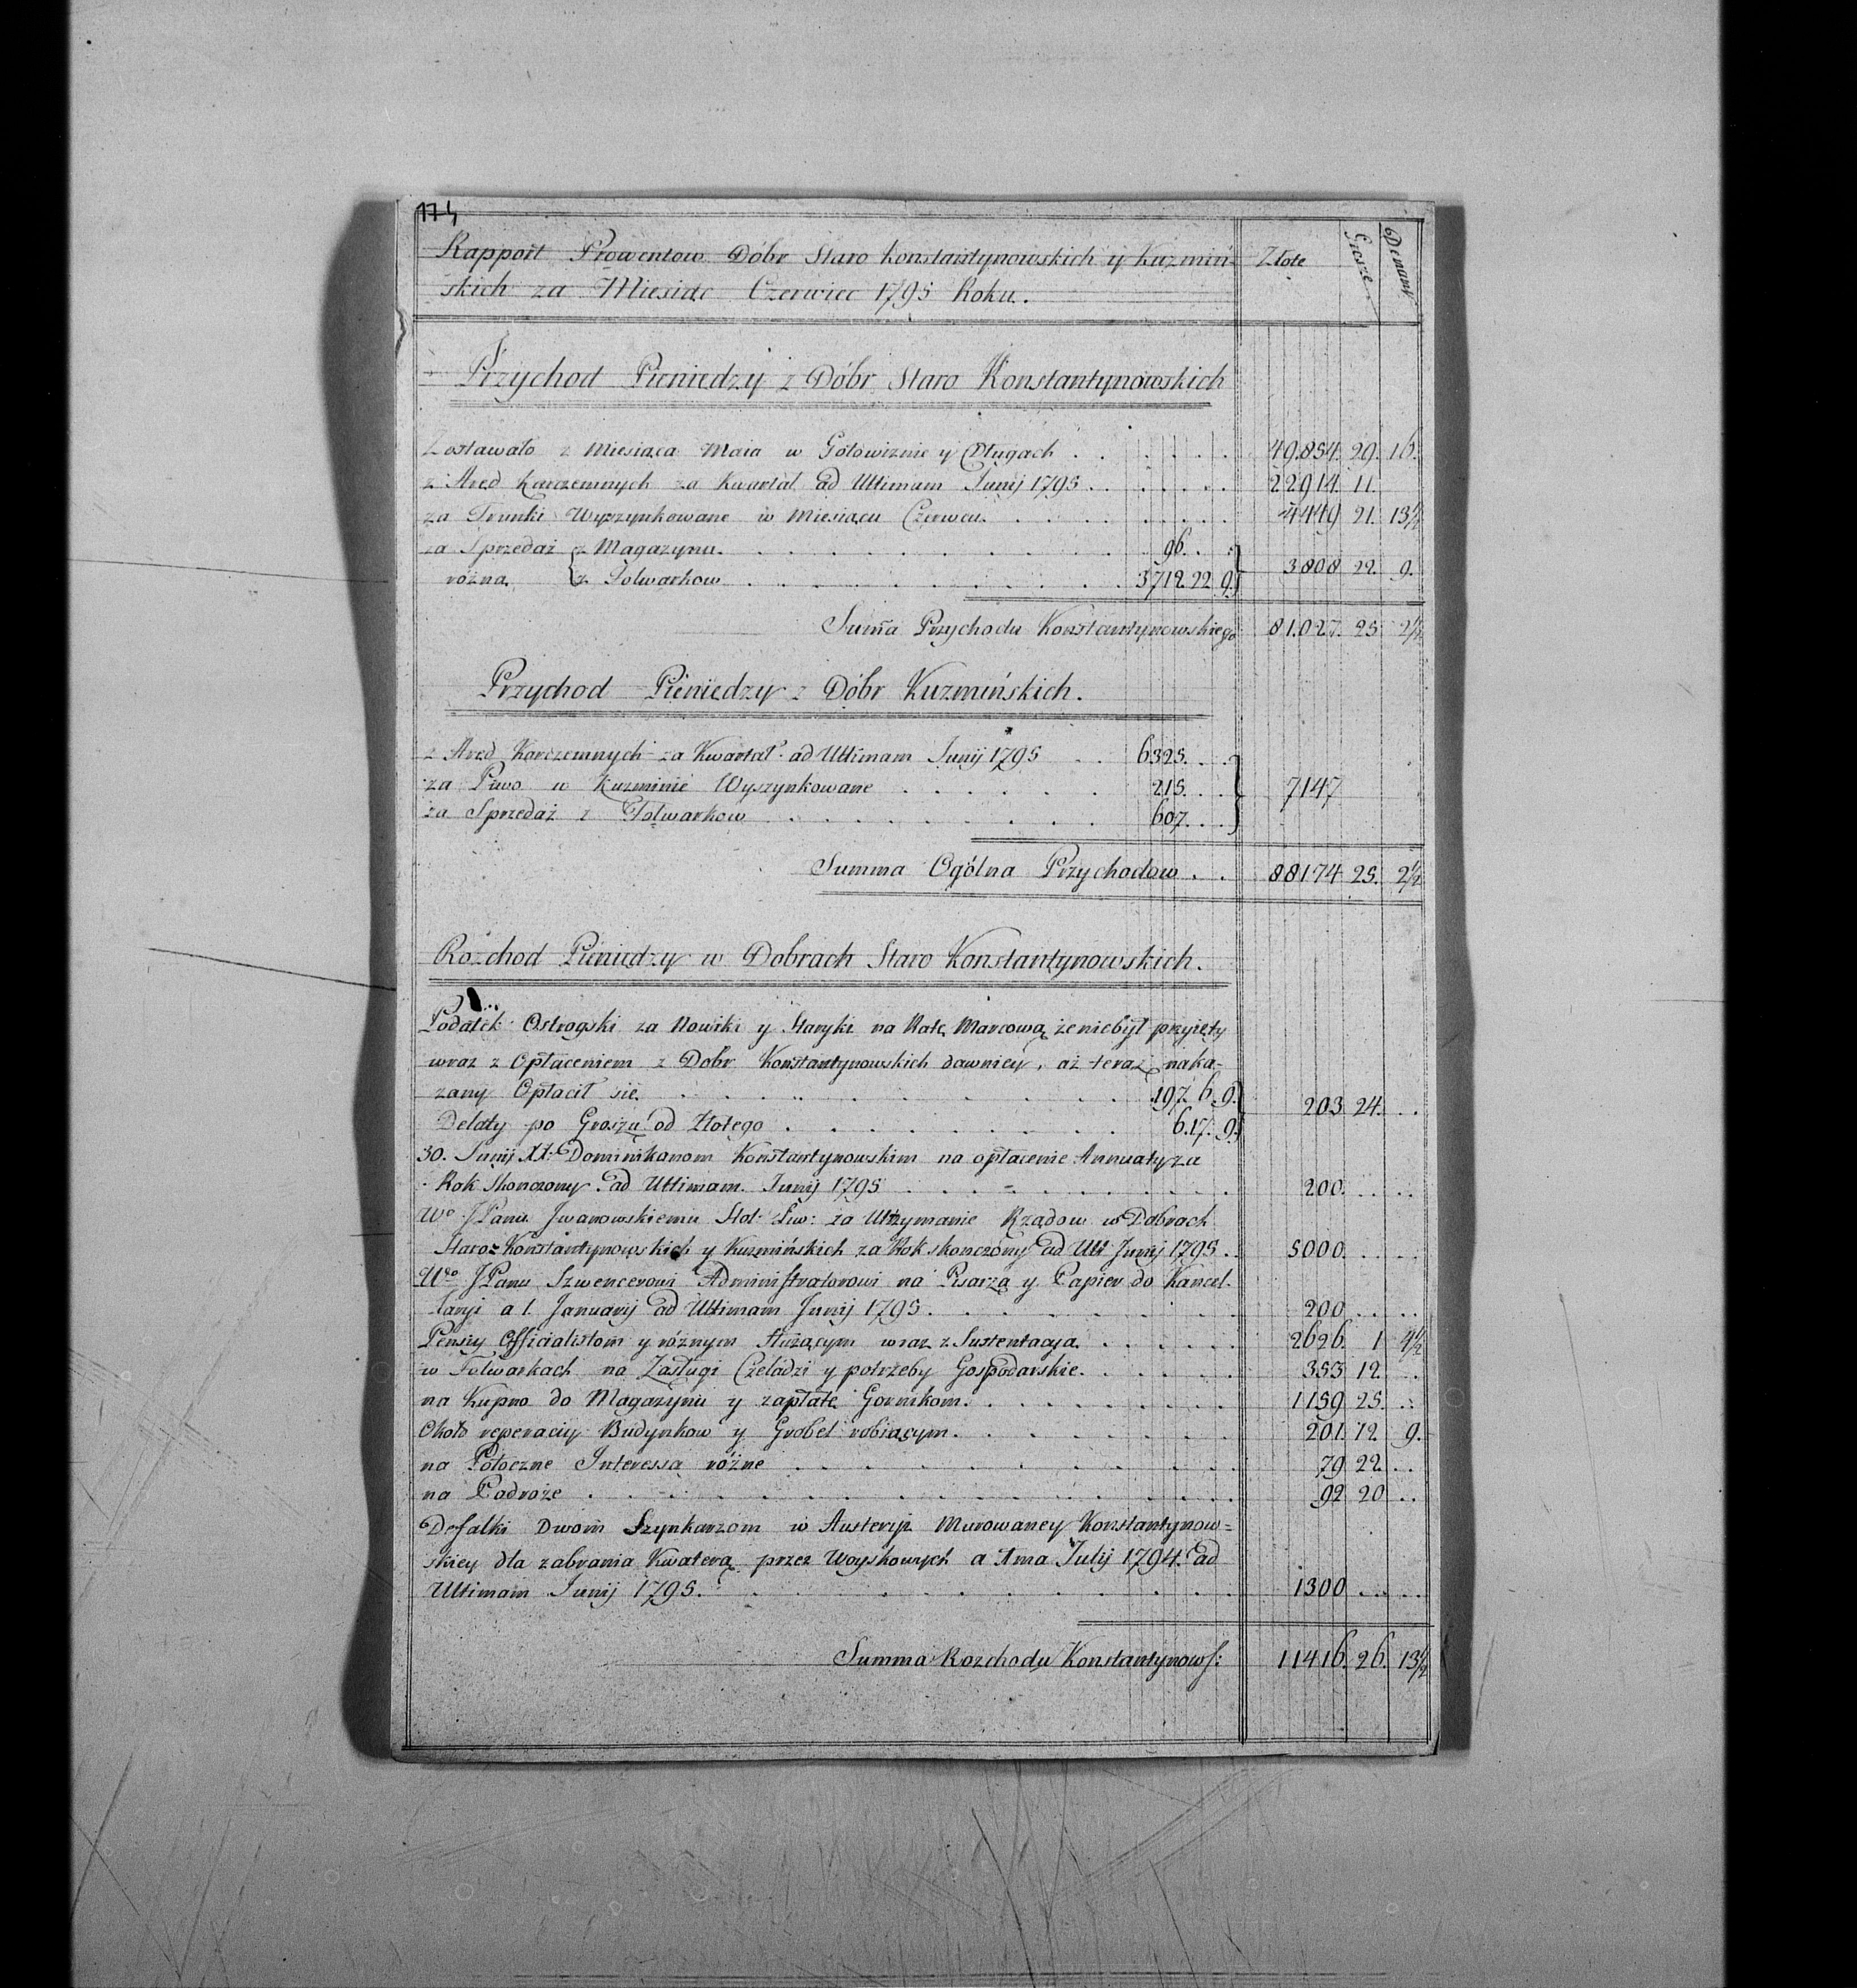 174
Rapport Prowentow Dóbr Staro Konstantynowskich y Kuzmiń= Złote Grosze Denary
skich za Miesiąc Czerwiec 1795 Roku.
Przychod Pieniędzy z Dóbr Staro Konstantynowskich
Zostawało z Miesiąca Maia w Gotowiznie y Długach . . . . . . 49.854. 29. 16.
z Aręd Karczemnych za Kwartał ad Ultimam Junij 1795 . . . . . . 22914. 11.
za Trunki Wyszynkowane w Miesiącu Czerwcu . . . . . . 4449 21. 13½
za Sprzedaż z Magazynu . . . . . . 96. . .
różną z Folwarkow . . . . . . 3712. 22. 9. 3808 22. 9.
Summa Przychodu Konstantynowskiego 81.027. 25. 2½
Przychod Pieniędzy z Dóbr Kuzmińskich.
z Aręd Karczemnych za Kwartał ad Ultimam Junij 1795 . . 6325. . .
za Piwo w Kuzminie Wyszynkowane . . . . . . 215. . . 7147
za Sprzedaż z Folwarkow . . . . . . 607. . .
Summa Ogólna Przychodow . . 88174 25. 2½
Rozchod Pieniędzy w Dobrach Staro Konstantynowskich.
Podatek Ostrogski za Nowiki y Staryki na Ratę Marcową, że niebył przyięty
wraz z Opłaceniem z Dobr Konstantynowskich dawniey, aż teraz naka-
zany Opłacił się . . . . . . 197. 6. 9.
Delaty po Groszu od Złotego . . . . . . 6. 17. 9. 203 24. . .
30. Junij XX: Dominikanom Konstantynowskim na opłacenie Annuaty za
Rok skonczony ad Ultimam Junij 1795 . . . . . . 200. . . . .
Wo JPanu Jwanowskiemu Stol: Liw: za Utrzymanie Rządow w Dobrach
Staro=Konstantynowskich y Kuzmińskich za Rok skonczony ad Ult: Junij 1795 . . 5000. . . . .
Wo JPanu Szwencerowi Administratorowi na Pisarza y Papier do Kancel-
laryi a 1. Januarij ad Ultimam Junij 1795 . . . . . . 200 . . . .
Pensiy Officialistom y różnym służącym wraz z Sustentacyą . . . . . . 2626. 1 4½
w Folwarkach na Zasługi Czeladzi y potrzeby Gospodarskie . . . . . . 353 12. . .
na Kupno do Magazynu y zapłatę Gornikom . . . . . . 1159 25. . .
Około reperaciy Budynkow y Grobel robiącym . . . . . . 201. 12. 9.
na Potoczne Interessa różne . . . . . . 79 22. . .
na Podroże . . . . . . 92 20 . .
Defalki Dwom Szynkarzom w Austeryi Murowaney Konstantynow=
skiey dla zabrania Kwaterą przez Woyskowych a 1ma Julij 1794. ad
Ultimam Junij 1795. . . . . . . 1300 . . . .
Summa Rozchodu Konstantynows: 11416. 26. 13½